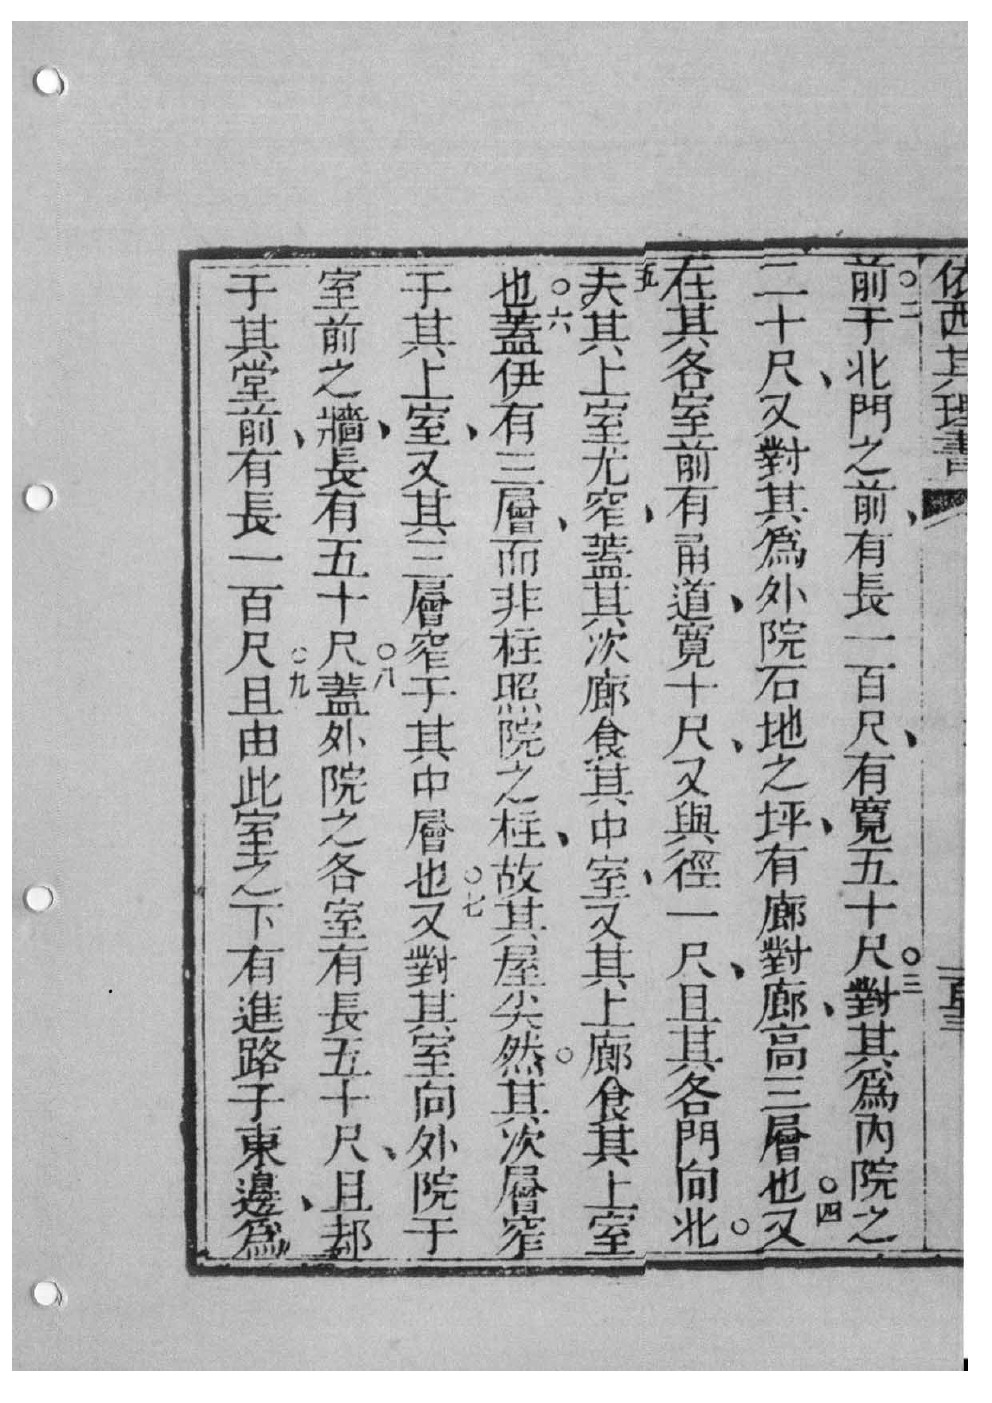 依西其理書
○二前于北門之前、有長一百尺、有寬五十尺○三對其爲內院之
二十尺、又對其爲外院石地之坪、有廊對廊、高三層也○四又
在其各室前有甬道、寬十尺、又與徑一尺、且其各門向北○
五夫其上室尤窄、蓋其次廊食其中室、又其上廊食其上室
也○六蓋伊有三層、而非柱照院之柱、故其屋尖然○其次層窄
于其上室、又其三層窄于其中層也○七又對其室向外院于
室前之牆、長有五十尺○八蓋外院之各室有長五十尺、且却
于其堂前、有長一百尺○九且由此室之下有進路于東邊、爲